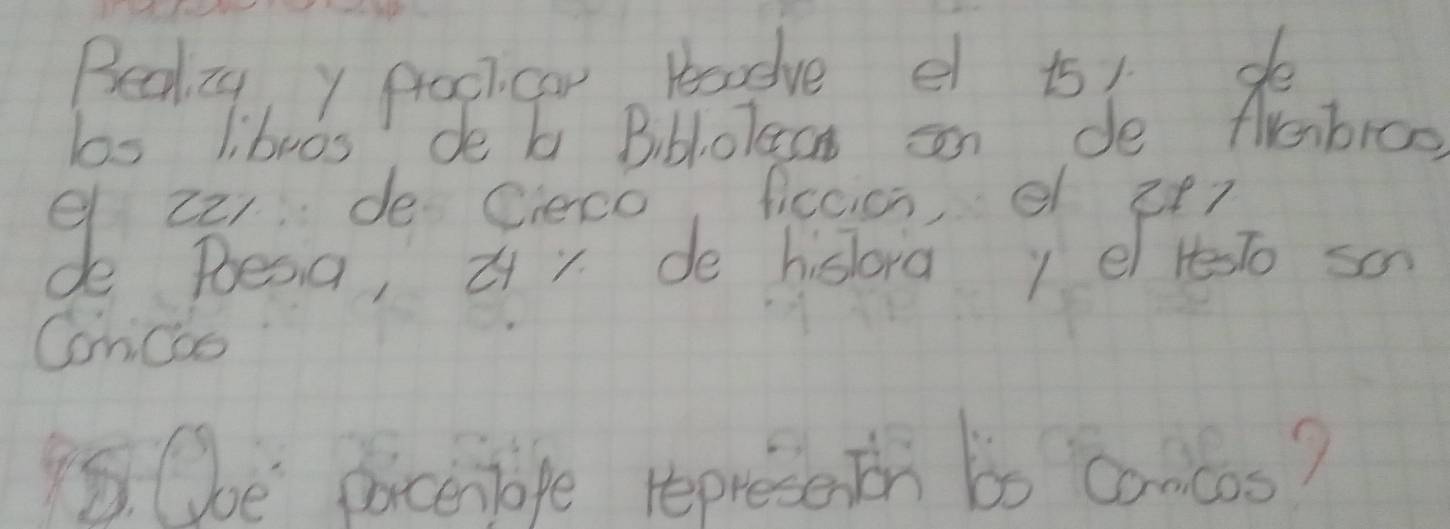 Realiza y practicar Resolve el 15% de
los libros de la Biblioteca son de Avenbras,
el 22% de Cienco ficcion, el
de Poesia, 21 % de historia y el resto son
Comicos
Que porcentaje representan los comicos?